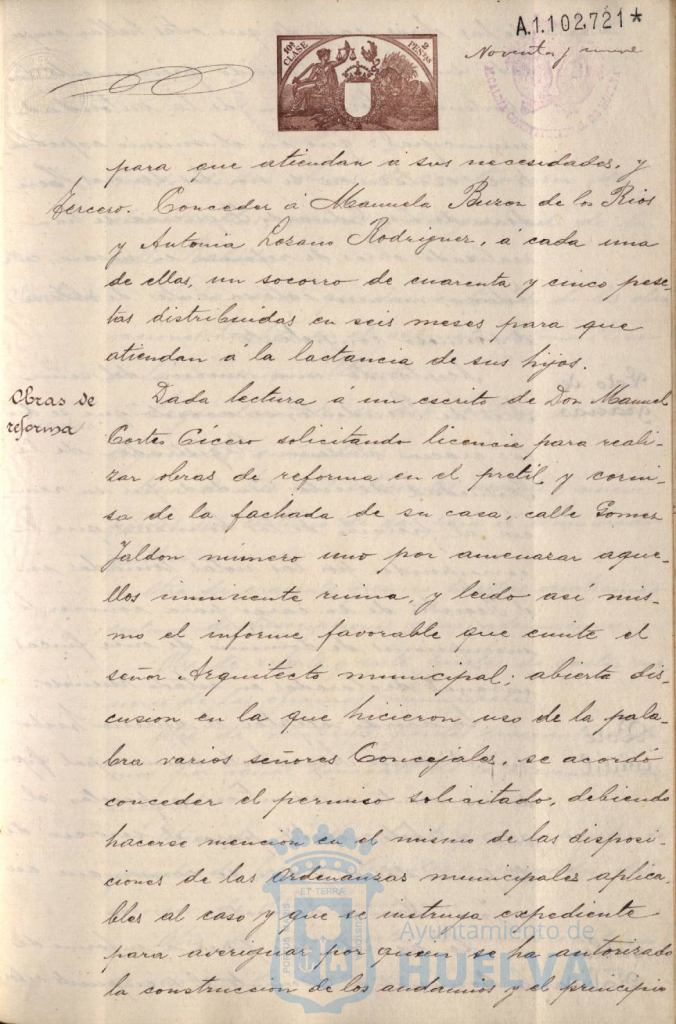 A.1.102.721*
Noventa y nueve
10ª CLASE
2 PESETAS
para que atiendan á sus necesidades, y
Tercero. Conceder á Manuela Buzon de los Rios
y Antonia Lozano Rodriguez, á cada una
de ellas, un socorro de cuarenta y cinco pese-
tas distribuidas en seis meses para que
atiendan á la lactancia de sus hijos.
Obras de
reforma
Dada lectura á un escrito de Don Manuel
Cortes Cícero solicitando licencia para reali-
zar obras de reforma en el pretil y corni-
sa de la fachada de su casa, calle Gomez
Jaldon número uno por amenazar aque-
llos inminente ruina, y leido así mis-
mo el informe favorable que emite el
señor Arquitecto municipal; abierta dis-
cusion en la que hicieron uso de la pala-
bra varios señores Concejales, se acordó
conceder el permiso solicitado, debiendo
hacerse mencion en el mismo de las disposi-
ciones de las Ordenanzas municipales aplica-
bles al caso y que se instruya expediente
para averiguar por quien se ha autorizado
la construccion de los andamios y el principio
Ayuntamiento de
HUELVA